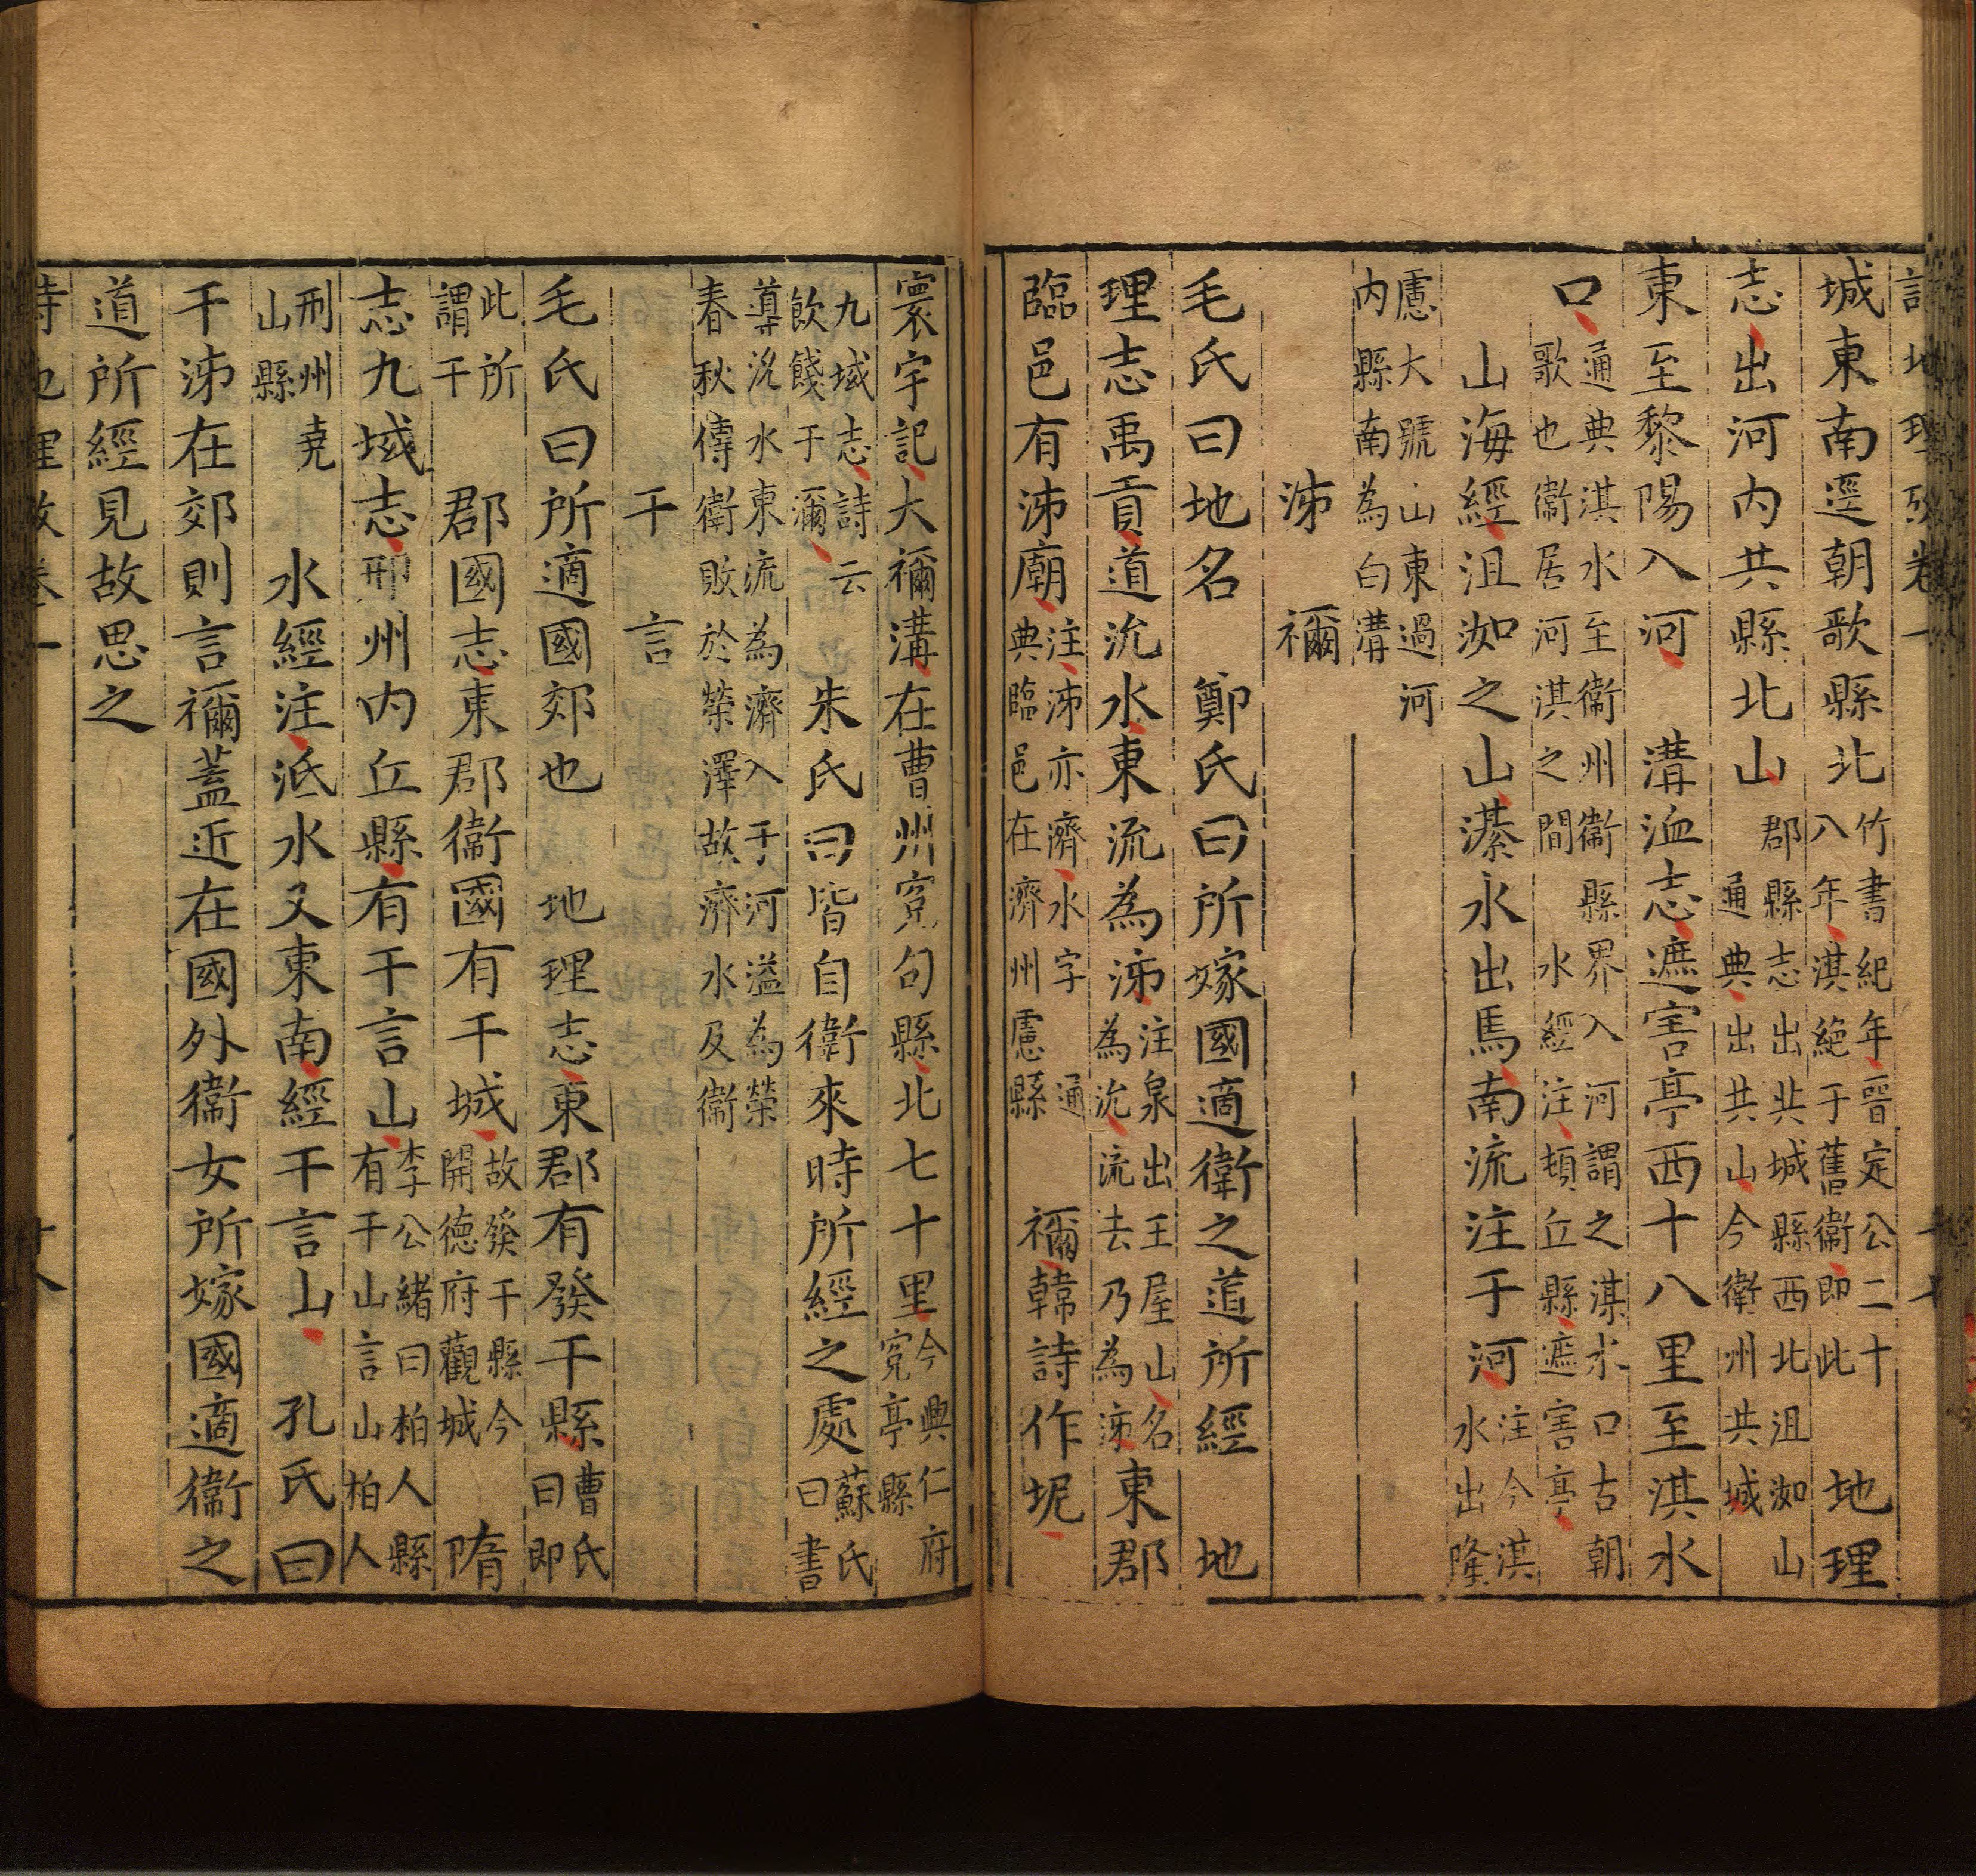 詩地理攷卷一
城東南逕朝歌縣北竹書紀年晉定公二十八年淇絕于舊衞即此 地理
志出河內共縣北山郡縣志出共城縣西北沮洳山通典出共山今衞州共城
東至黎陽入河 溝洫志遮害亭西十八里至淇水
口通典淇水至衞州衞縣界入河謂之淇水口古朝歌也衞居河淇之間 水經注頓丘縣遮害亭
山海經沮洳之山濝水出焉南流注于河注今淇水出隆
慮大號山東過河內縣南為白溝
泲 禰
毛氏曰地名 鄭氏曰所嫁國適衛之道所經 地
理志禹貢道沇水東流為泲注泉出王屋山名為沇流去乃為泲東郡
臨邑有泲廟注泲亦濟水字 通典臨邑在濟州慮縣 禰韓詩作坭
寰宇記大禰溝在曹州寃句縣北七十里今興仁府寃亭縣
九域志詩云飲餞于禰 朱氏曰皆自衛來時所經之處蘇氏曰書
導沇水東流為濟入于河溢為滎春秋傳衛敗於滎澤故濟水及衞
干 言
毛氏曰所適國郊也 地理志東郡有發干縣曹氏曰即
此所謂干 郡國志東郡衞國有干城故發干縣今開德府觀城 隋
志九域志邢州內丘縣有干言山李公緒曰柏人縣有干山言山柏人
刑州堯山縣 水經注泜水又東南經干言山 孔氏曰
干泲在郊則言禰蓋近在國外衞女所嫁國適衞之
道所經見故思之
詩地理攷卷一 十八